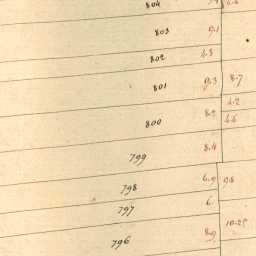 804
803 9.1
802 6.3
801 9.3 8.7
6.2
800 8.2 6.6
799 8.4
798 6.9 9.6
797 6
796 8.9 10.25